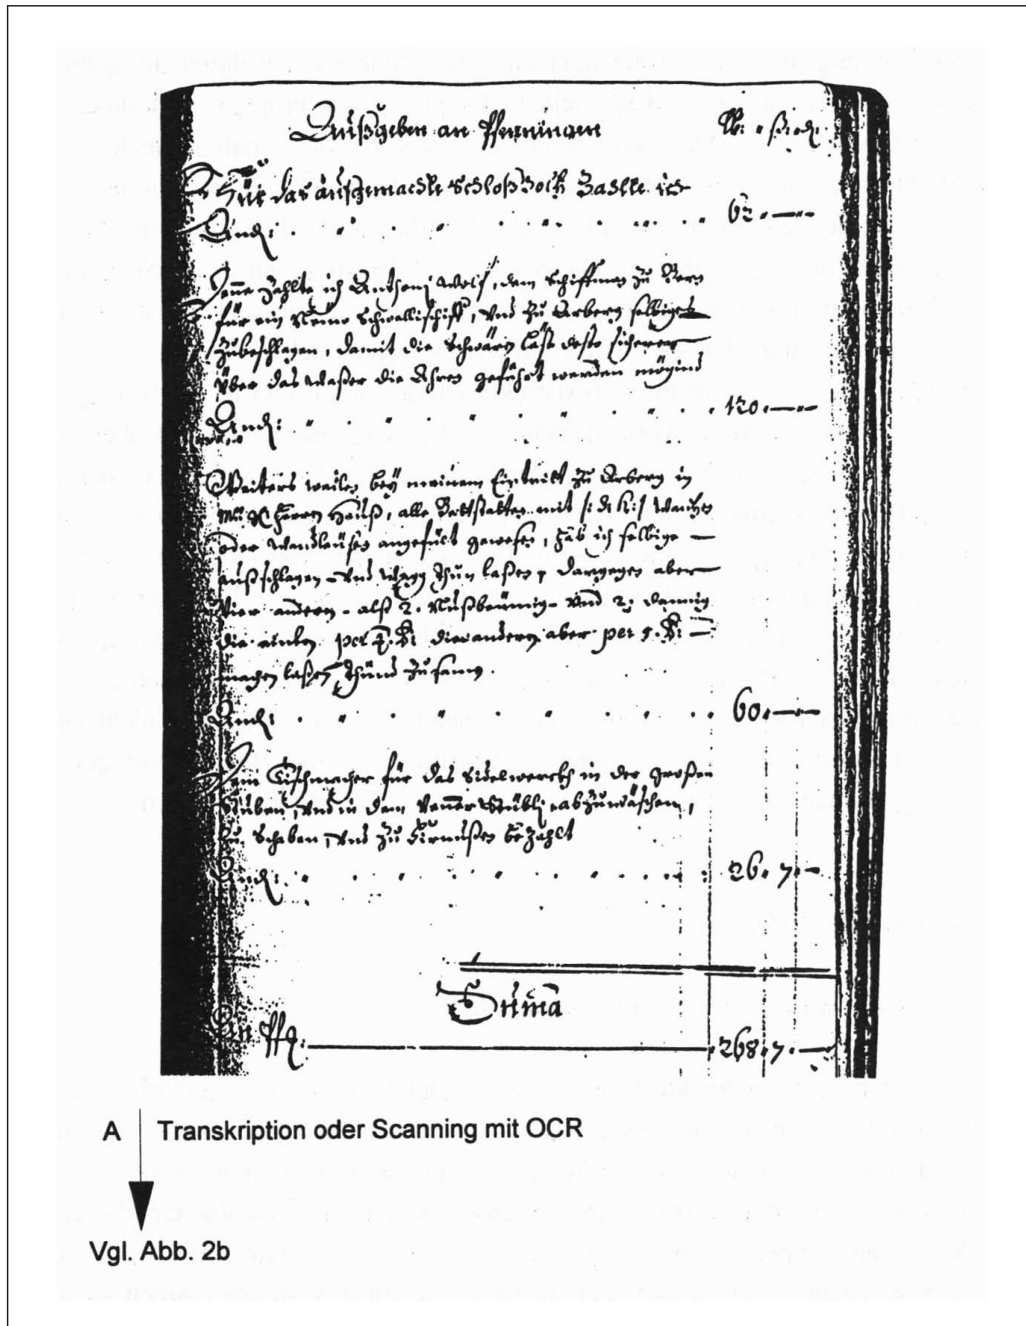 Außgeben an Pfenningen lb. ß. d.
Für das außgemachte Schloß Holtz zahlte ich
An d: 62.
Denne zahlte ich Anthonj Wolf, dem Schiffman zu
für ein Schiff, vnd zu Arberg selbiges
Zubeschlagen, damit die Schwäry Last desto sicherer
über das Waßer die Ahren geführt werden mögind
An d: 120.
Weiters weilen bey meinem Eintritt zu Arberg in
MngHherren Hauß, alle Bettstatten mit
oder Wandleüsen angefült gewesen, hab ich selbige
außschlagen vnd wägg thun laßen, dargegen aber
Vier andern - alß 2. Nußbäumig vnd 2. dannig
die einten per die andern aber per
machen laßen, thund zusamen
An d: 60.
Dem Tischmacher für das Sidelwerckh in der großen
Stuben, vnd in dem Venner Stübli abzuwäschen,
zu Schaben, vnd zu Firnußen bezahlt
An d: 26. 7.
Suma
An Pfg. 268. 7.
A Transkription oder Scanning mit OCR
Vgl. Abb. 2b